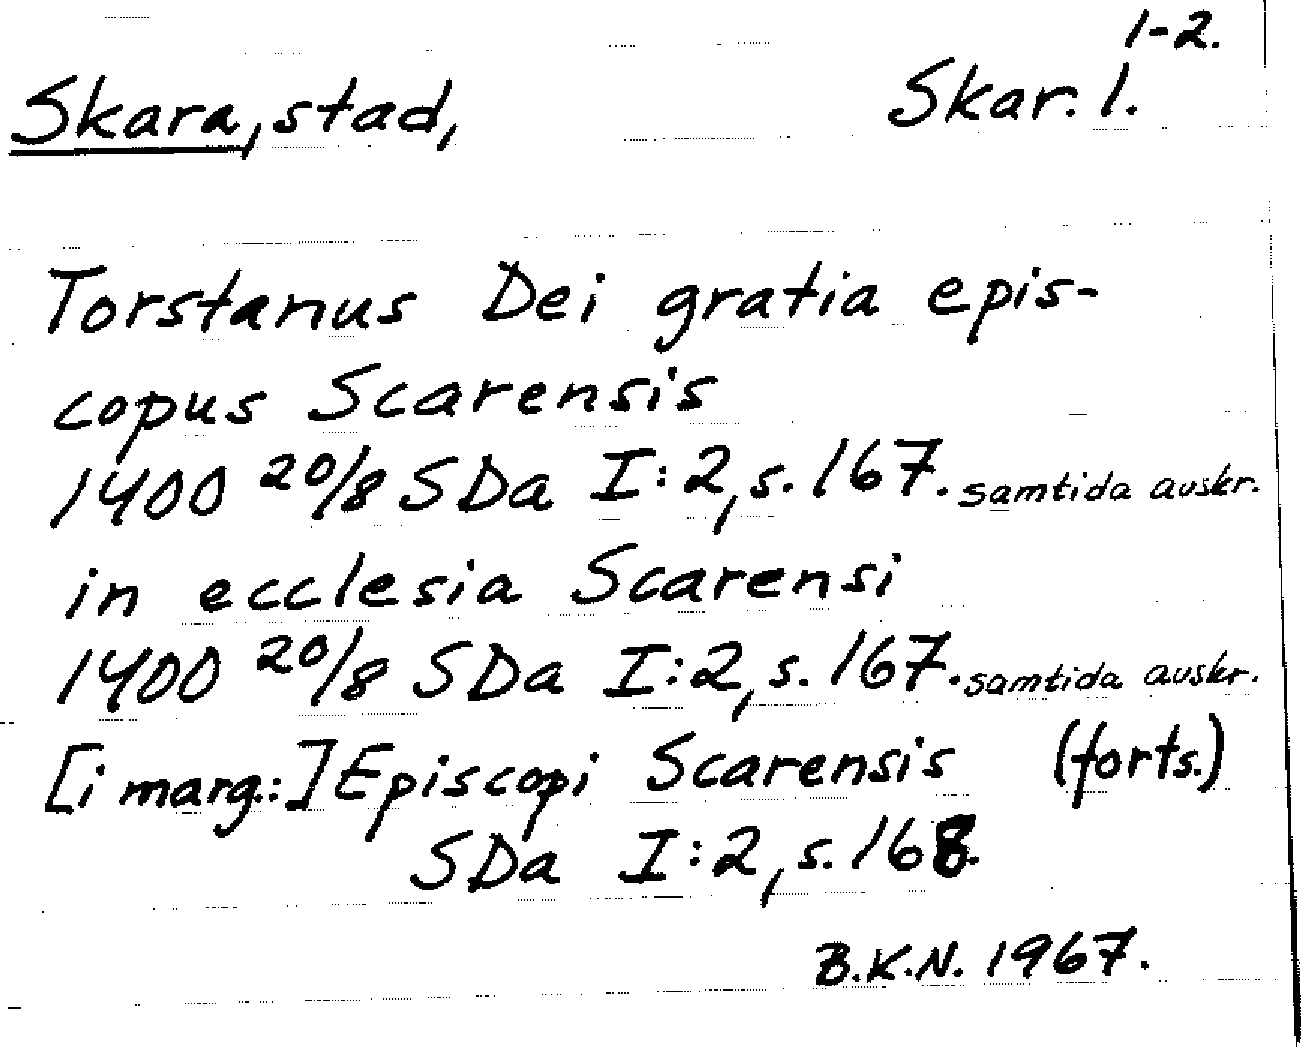 1-2.
Skara, stad, Skar. l.
Torstanus Dei gratia epis-
copus Scarensis
1400 20/8 SDa I:2, s. 167. samtida avskr.
in ecclesia Scarensi
1400 20/8 SDa I:2, s. 167. samtida avskr.
[i marg.:] Episcopi Scarensis (forts.)
SDa I:2, s. 168.
B.K.N. 1967.